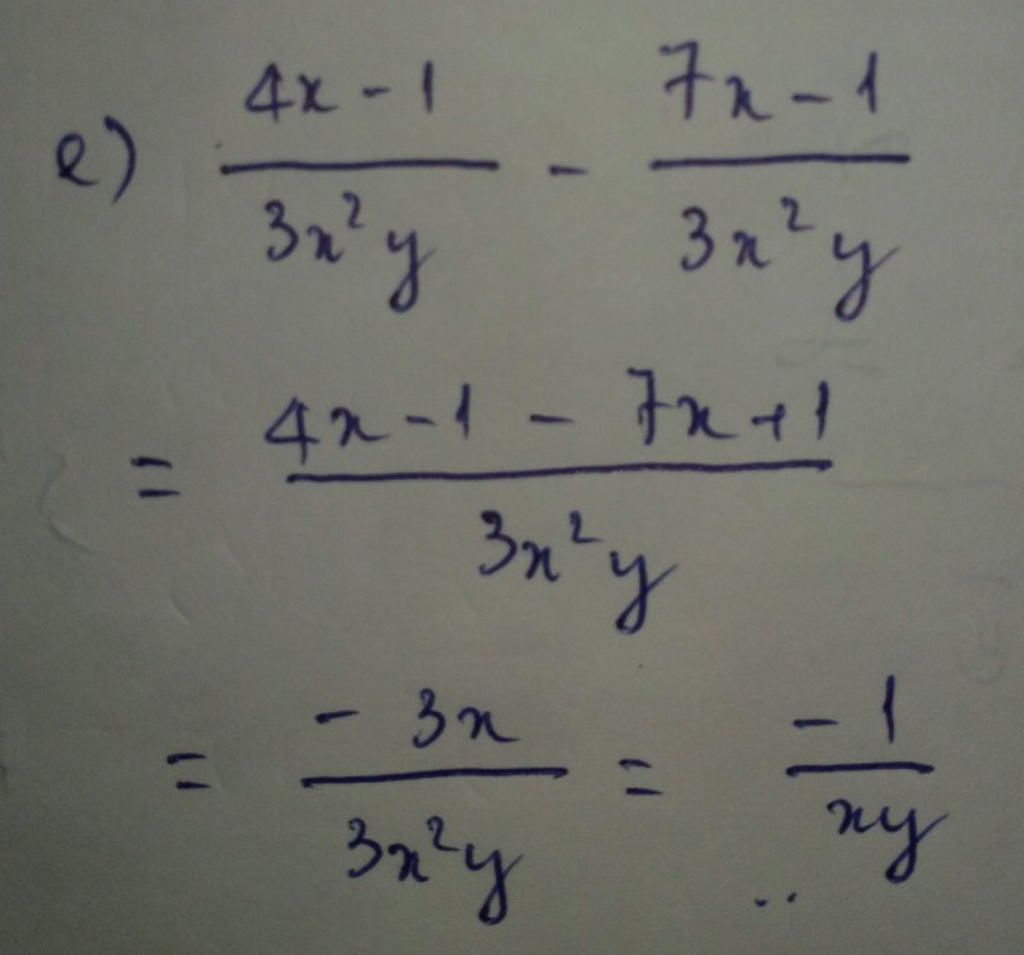 e) (4x - 1)/(3x²y) - (7x - 1)/(3x²y)
= (4x - 1 - 7x + 1)/(3x²y)
= (- 3x)/(3x²y) = (- 1)/(xy)